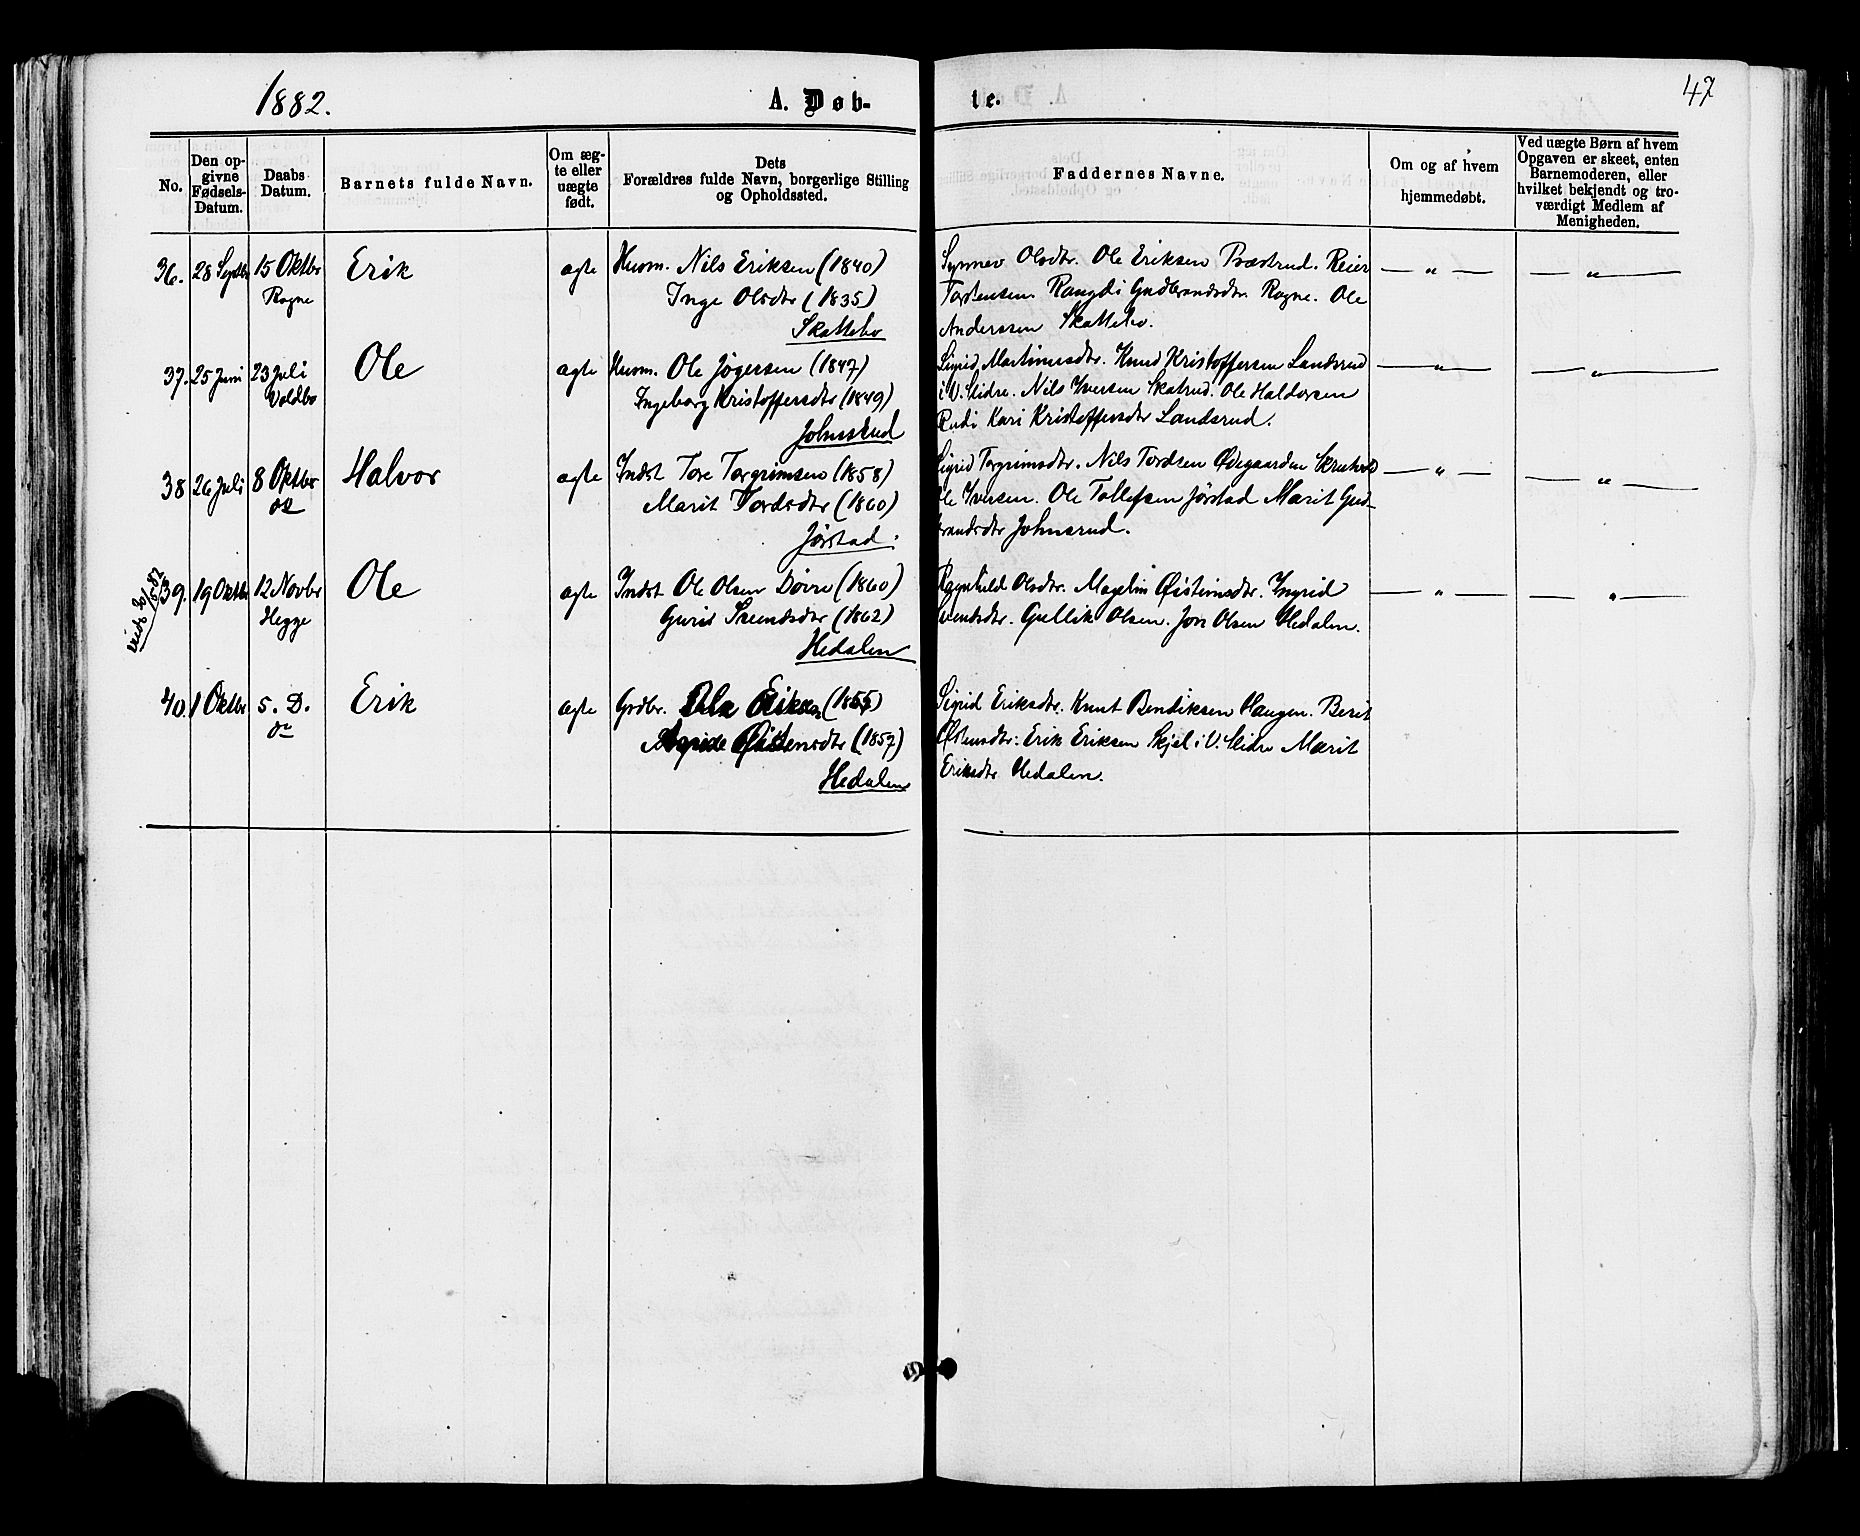 1882.
A. Døb-
te.
47
No.
Den op-
givne
Fødsels-
Datum.
Daabs
Datum.
Barnets fulde Navn.
Om æg-
te eller
uægte
født.
Dets
Forældres fulde Navn, borgerlige Stilling
og Opholdssted.
Faddernes Navne.
Om og af hvem
hjemmedøbt.
Ved uægte Børn af hvem
Opgaven er skeet, enten
Barnemoderen, eller
hvilket bekjendt og tro-
værdigt Medlem af
Menigheden.
36. 28 Septbr 15 Oktbr Erik ægte Husm. Nils Eriksen (1840)
Rogne Inge Olsdtr (1835)
Skattebo
Synnev Olsdtr. Ole Eriksen Præstrud. Reier
Torstensen. Rangdi Gudbrandsdtr. Rogne. Ole
Anderssen Skattebo.
— „ — — „ —
37. 25 Juni 23 Juli Ole ægte Husm. Ole Jøgersen (1847)
Voldbo Ingeborg Kristoffersdtr (1849)
Johnsrud
Sigrid Martinusdtr. Knud Kristoffersen Landsrud
i V. Slidre. Nils Iversen Skatrud. Ole Haldorsen
Rudi Kari Kristoffersdtr Landsrud.
— „ — — „ —
38 26 Juli 8 Oktbr Halvor ægte Indst Tore Torgrimsen (1858)
Marit Tordsdtr (1860)
Jørstad.
Sigrid Torgrimsdtr. Nils Tordsen Ødegaarden
Ole Iversen. Ole Tollefsen Jørstad Marit Gud-
brandsdtr Johnsrud.
— „ — — „ —
39. 19 Oktbr 12 Novbr Ole ægte Indst Ole Olsen Døvre (1860)
Hegge Guris Svendsdtr (1862)
Hedalen
Ragnhild Olsdtr. Magelin Øisteinsdtr. Ingrid
Svendsdtr. Gullik Olsen. Jon Olsen Hedalen.
— „ — — „ —
40. 1 Oktbr 5. D. Erik ægte Grdbr. Ola Eriksen (1855)
do Østensdtr (1857)
Hedalen
Sigrid Eriksdtr. Knut Bendiksen Haugen. Berit
Østensdtr. Erik Eriksen Skjel i V. Slidre Marit
Eriksdtr Hedalen.